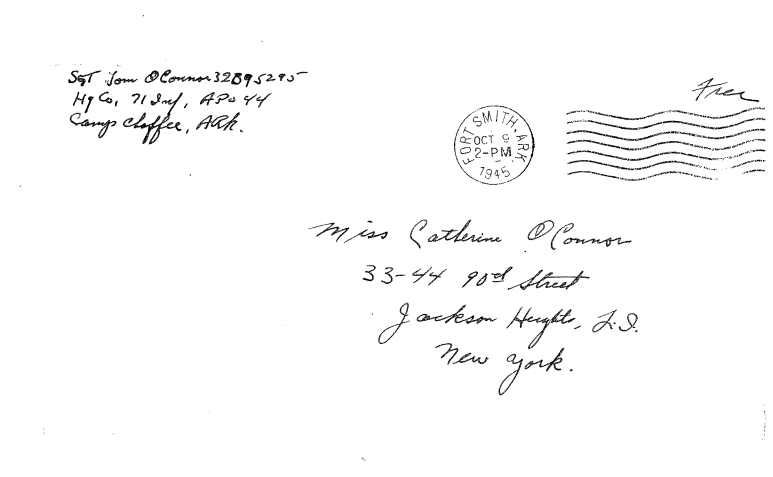 Sgt Tom O'Connor 32895295
Hq Co, 71 Inf, APO 44
Camp Chaffee, ARK.
Free
FORT SMITH, ARK
OCT 9
2-PM
1945
Miss Catherine O'Connor
33-44 90rd Street
Jackson Heights, L.I.
New York.